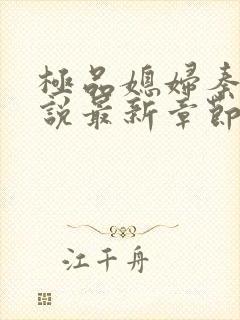 極品媳婦秦
說最新章節
江千舟